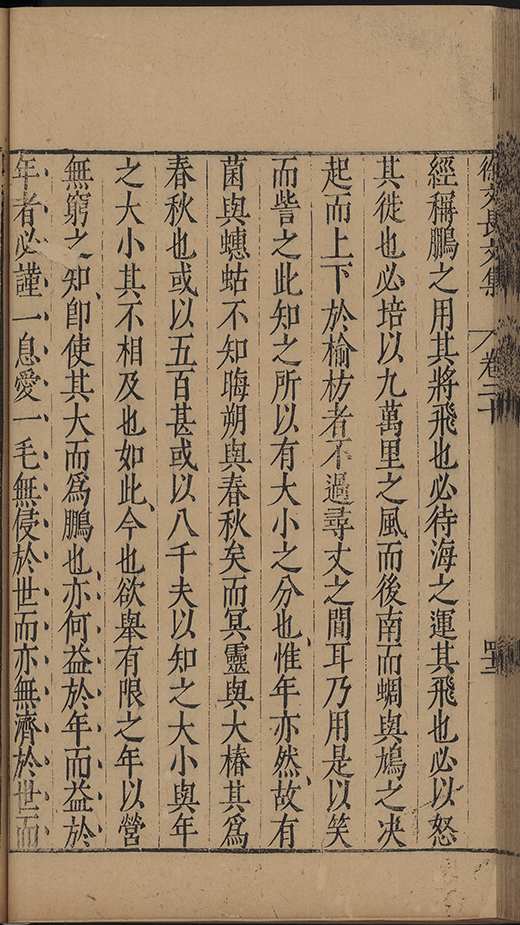 徐文長文集
卷二十
四三
經稱鵬之用其將飛也必待海之運其飛也必以怒
其徙也必培以九萬里之風而後南而蜩與鳩之决
起而上下於榆枋者不過尋丈之間耳乃用是以笑
而訾之此知之所以有大小之分也惟年亦然故有
菌與蟪蛄不知晦朔與春秋矣而冥靈與大椿其爲
春秋也或以五百甚或以八千夫以知之大小與年
之大小其不相及也如此今也欲舉有限之年以營
無窮之知卽使其大而爲鵬也亦何益於年而益於
年者必謹一息愛一毛無侵於世而亦無濟於世而